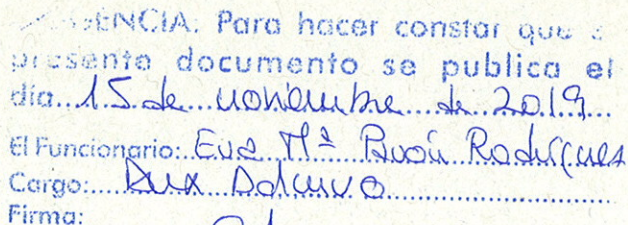 ENCIA: Para hacer constar que
presente documento se publica el
día...15 de noviembre de 2019
El Funcionario: Eva Mª Rodríguez
Cargo: Aux
Firma: